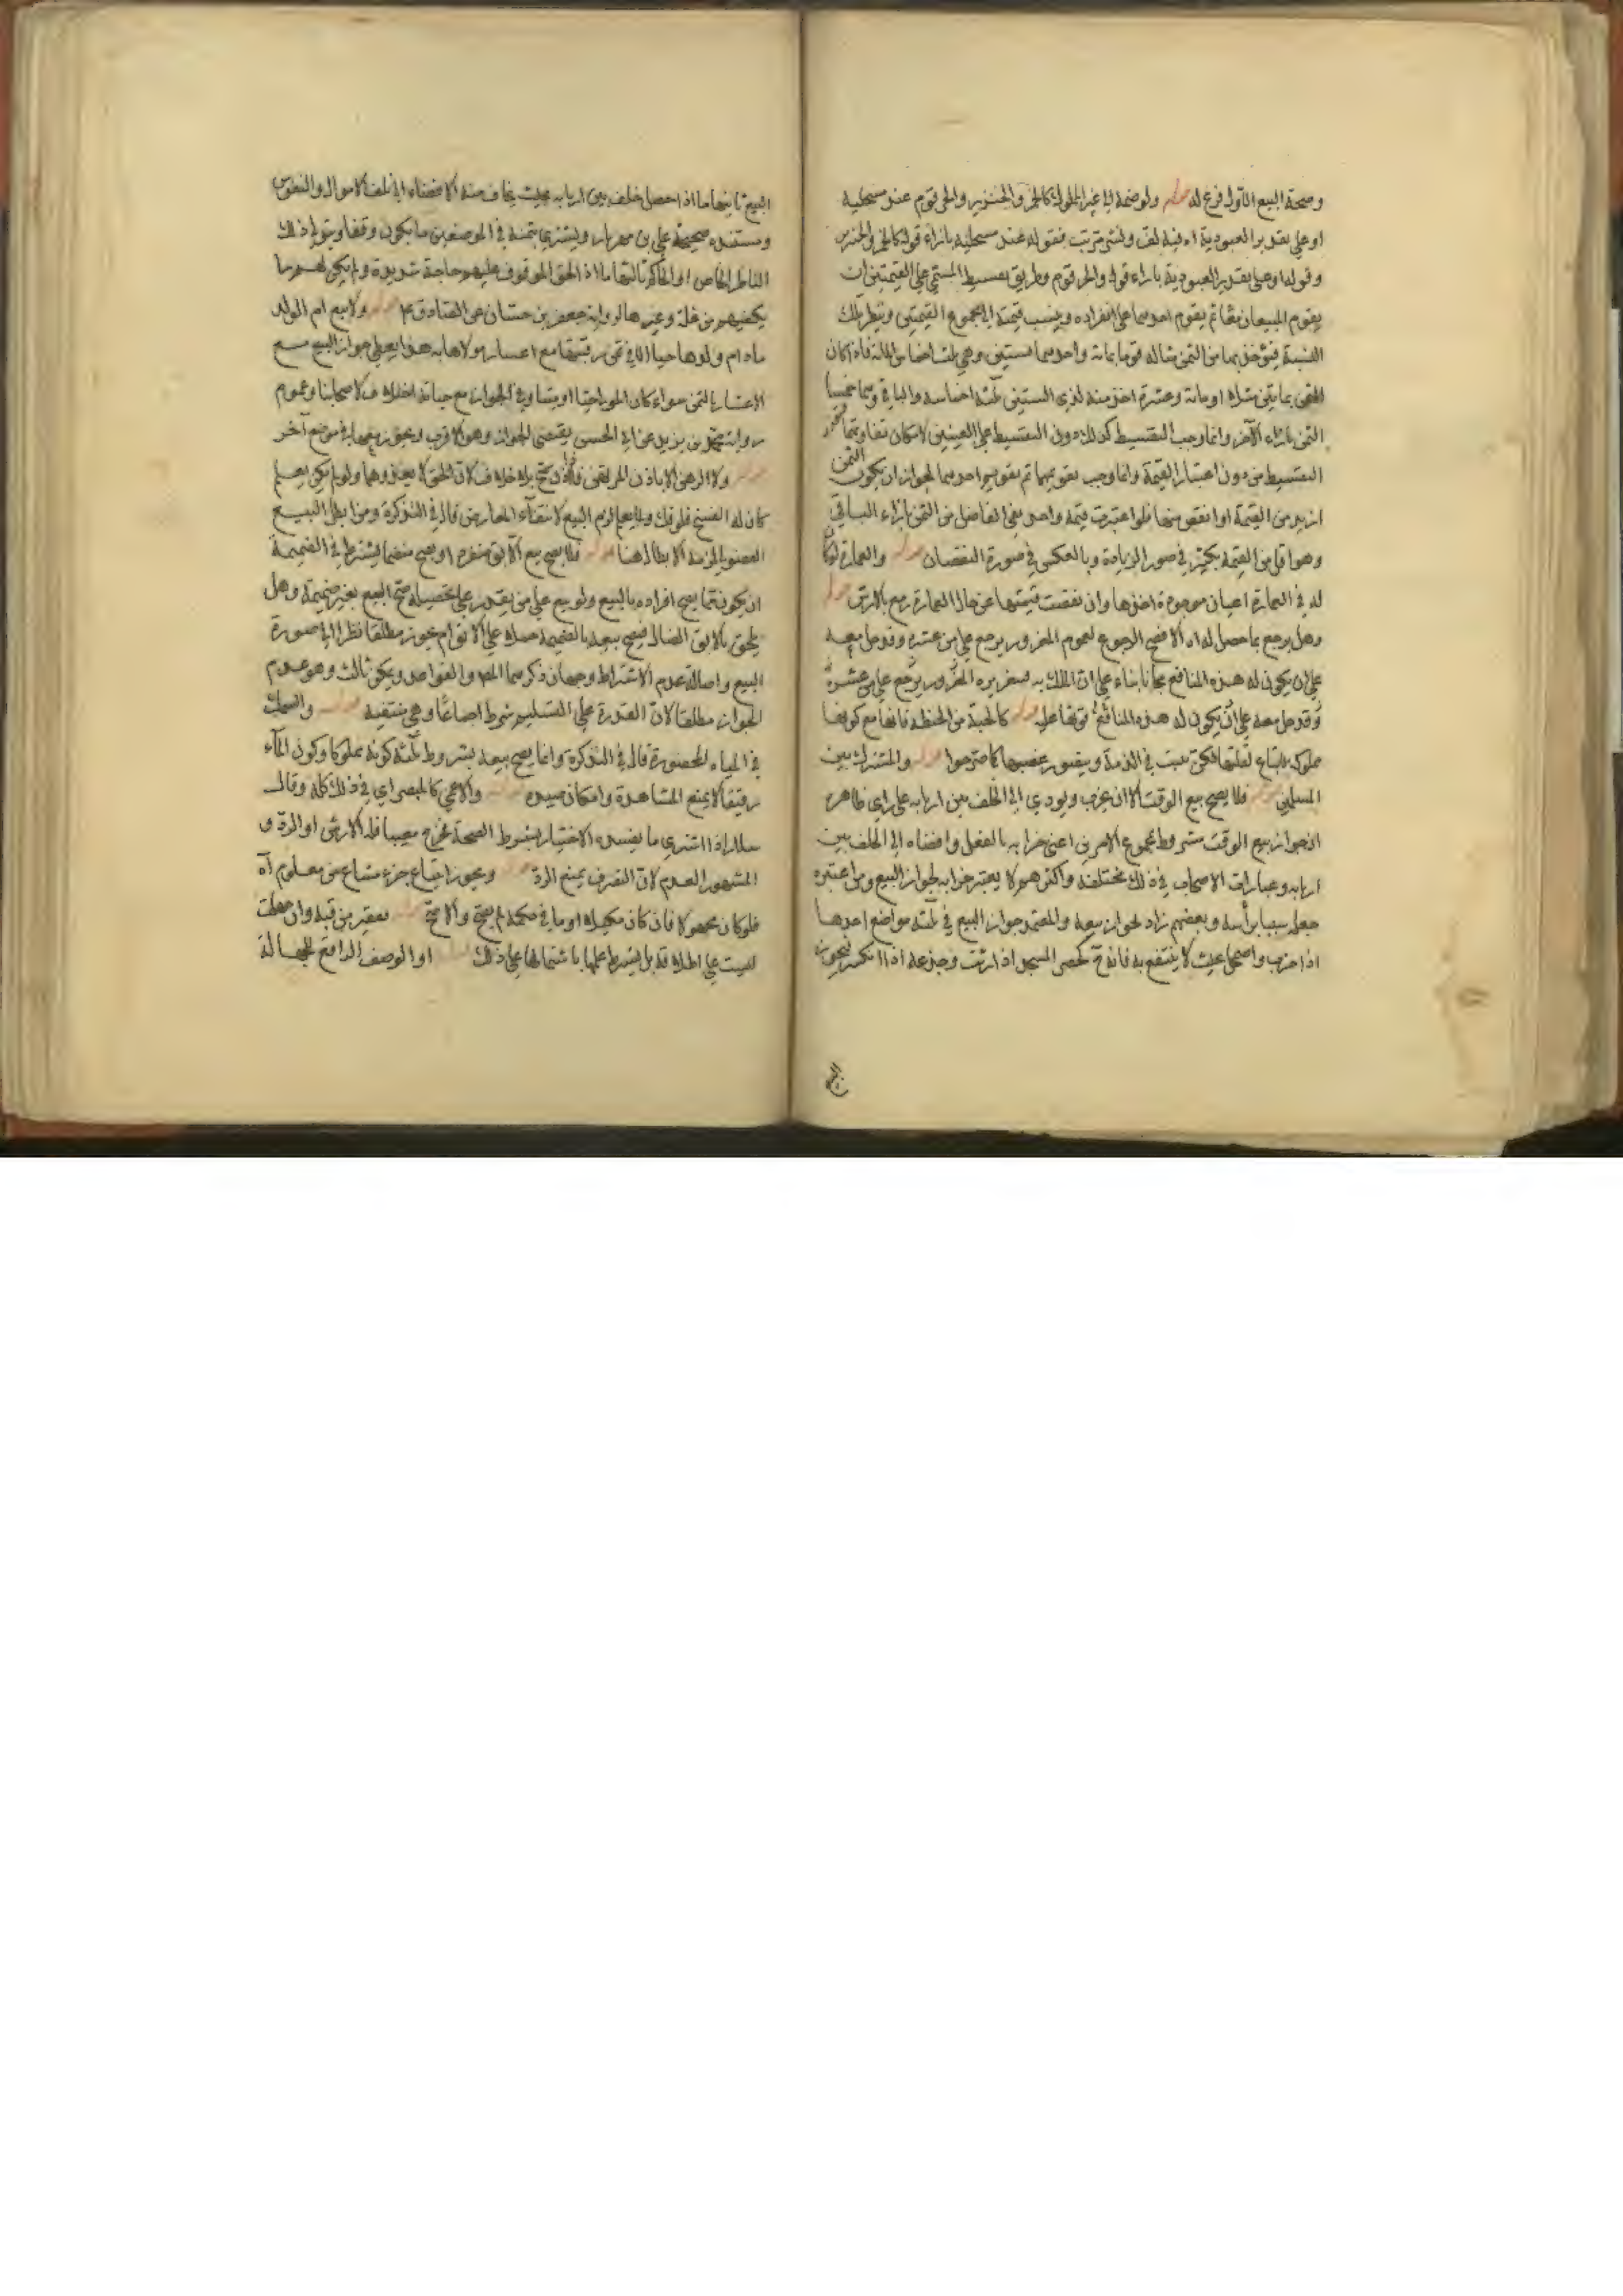 وصحة البيع الاول فرع له قوله ولو ضمه الى غير المملوك كالخمر والخنزير والحر قوم عند مستحليه
او على تقدير العبودية اه فيه لف ونشر مرتب فقوله عند مستحليه بازاء قوله كالخمر والخنزير
وقوله او على تقدير العبودية بازاء قوله والحر قوم وطريق تقسيط المسمى على القيمتين ان
يقوم المبيعان معا ثم يقوم احدهما على انفراده وينسب قيمته الى مجموع القيمتين وينظر تلك
النسبة فيؤخذ بها من الثمن مثاله قوما بمائة واحدهما بستين وهي ثلثة اخماس المائة فاذا كان
الثمن بازاء الآخر وانما وجب التقسيط كذلك دون التقسيط على العينين لامكان تفاوتهما
التقسيط من دون اعتبار القيمة وانما وجب تقويمهما ثم تقويم احدهما لجواز ان يكون الثمن
ازيد من القيمة او انقص منها فلو اعتبرت قيمة واحد بقي الفاضل من الثمن بازاء الباقي
وهو اقل من القيمة بكثير في صورة الزيادة وبالعكس في صورة النقصان قوله والعمارة
له في العمارة اعيان موجودة اخذها وان نقصت قيمتها عن حال العمارة رجع بالارش قوله
وهل يرجع بما حصل له اه الاصح الرجوع لعموم المغرور يرجع على من غره وقد دخل معه
على ان يكون له هذه المنافع مجانا بناء على ان الملك له فتغريره المغرور يرجع على من غره
وقد دخل معه على ان يكون له هذه المنافع قوله كالحبة من الحنطة فانها مع كونها
مملوكة لا تباع لقلتها لكن تثبت في الذمة ويتصور غصبها كما صرحوا قوله والمشترك بين
المسلمين قوله فلا يصح بيع الوقف الا ان يخرب ويؤدي الى الخلف بين اربابه على راي ظاهره
ان جواز بيع الوقف مشروط بمجموع الامرين اعني خرابه بالفعل وافضاءه الى الخلف بين
اربابه وعبارات الاصحاب في ذلك مختلفة واكثرهم لا يعتبر خرابه لجواز البيع ومن اعتبره
جعله سببا برأسه وبعضهم زاد لجواز بيعه والمعتمد جواز البيع في ثلثة مواضع احدها
اذا خرب واضمحل بحيث لا ينتفع به فانه ح كحصر المسجد اذا رثت وجذعه اذا انكسر فيجوز
البيع
البيع ثانيها ما اذا حصل خلف بين اربابه بحيث يخاف منه الافضاء الى تلف الاموال والنفوس
ومستنده صحيحة علي بن مهزيار ويشترى بثمنه في الموضعين ما يكون وقفا ويتولى ذلك
الناظر الخاص او الحاكم ثالثها ما اذا لحق الموقوف عليهم حاجة شديدة ولم يكن لهم ما
يكفيهم من غلة وغيرها لرواية جعفر بن حنان عن الصادق ع قوله ولا بيع ام الولد
ما دام ولدها حيا الا في ثمن رقبتها مع اعسار مولاها به هذا يعطي جواز البيع مع
الاعسار بالثمن سواء كان المولى حيا او ميتا وفي الجواز مع حياته اختلاف لاصحابنا وعموم
رواية عمر بن يزيد عن ابي الحسن يقتضي الجواز وهو الاقرب ويجوز بيعها في موضع آخر
قوله ولا الرهن الا باذن المرتهن فان اذن صح بلا خلاف لان الحق لا يعدوهما ولو لم يكن يعلم
كان له الفسخ فلو فك ولما يعلم لزم البيع لانتفاء المعارض قال في التذكرة ومن ابطل البيع
الفضولي لزمه الابطال هنا قوله فلا يصح بيع الآبق منفردا ويصح منضما يشترط في الضميمة
ان يكون مما يصح افراده بالبيع ولو بيع على من يقدر على تحصيله صح البيع بغير ضميمة وهل
يلحق بالابق الضال فيصح بيعه بالضميمة حملا على الآبق ام يجوز مطلقا نظرا الى صورة
البيع واصالة عدم الاشتراط وجهان ذكرهما المص والفواضل ويمكن ثالث وهو عدم
الجواز مطلقا لان القدرة على التسليم شرط اجماعا وهي منتفية قوله والسمك
في المياه المحصورة قال في التذكرة وانما يصح بيعه بشروط ثلثة كونه مملوكا وكون الماء
رقيقا لا يمنع المشاهدة وامكان صيده قوله والاعمى كالمبصر اي في ذلك كله وقال
سلار اذا اشترى ما يفسده الاختبار بشرط الصحة فخرج معيبا فله الارش او الرد و
المشهور العدم لان التصرف يمنع الرد قوله ويجوز ابتياع جزء مشاع من معلوم اه
فلو كان مجهولا فان كان مكيلا او ما في حكمه لم يصح والا صح قوله
ليست على اطلاقه بل يشترط علمها باشتمالها على ذلك قوله او الوصف الرافع للجهالة